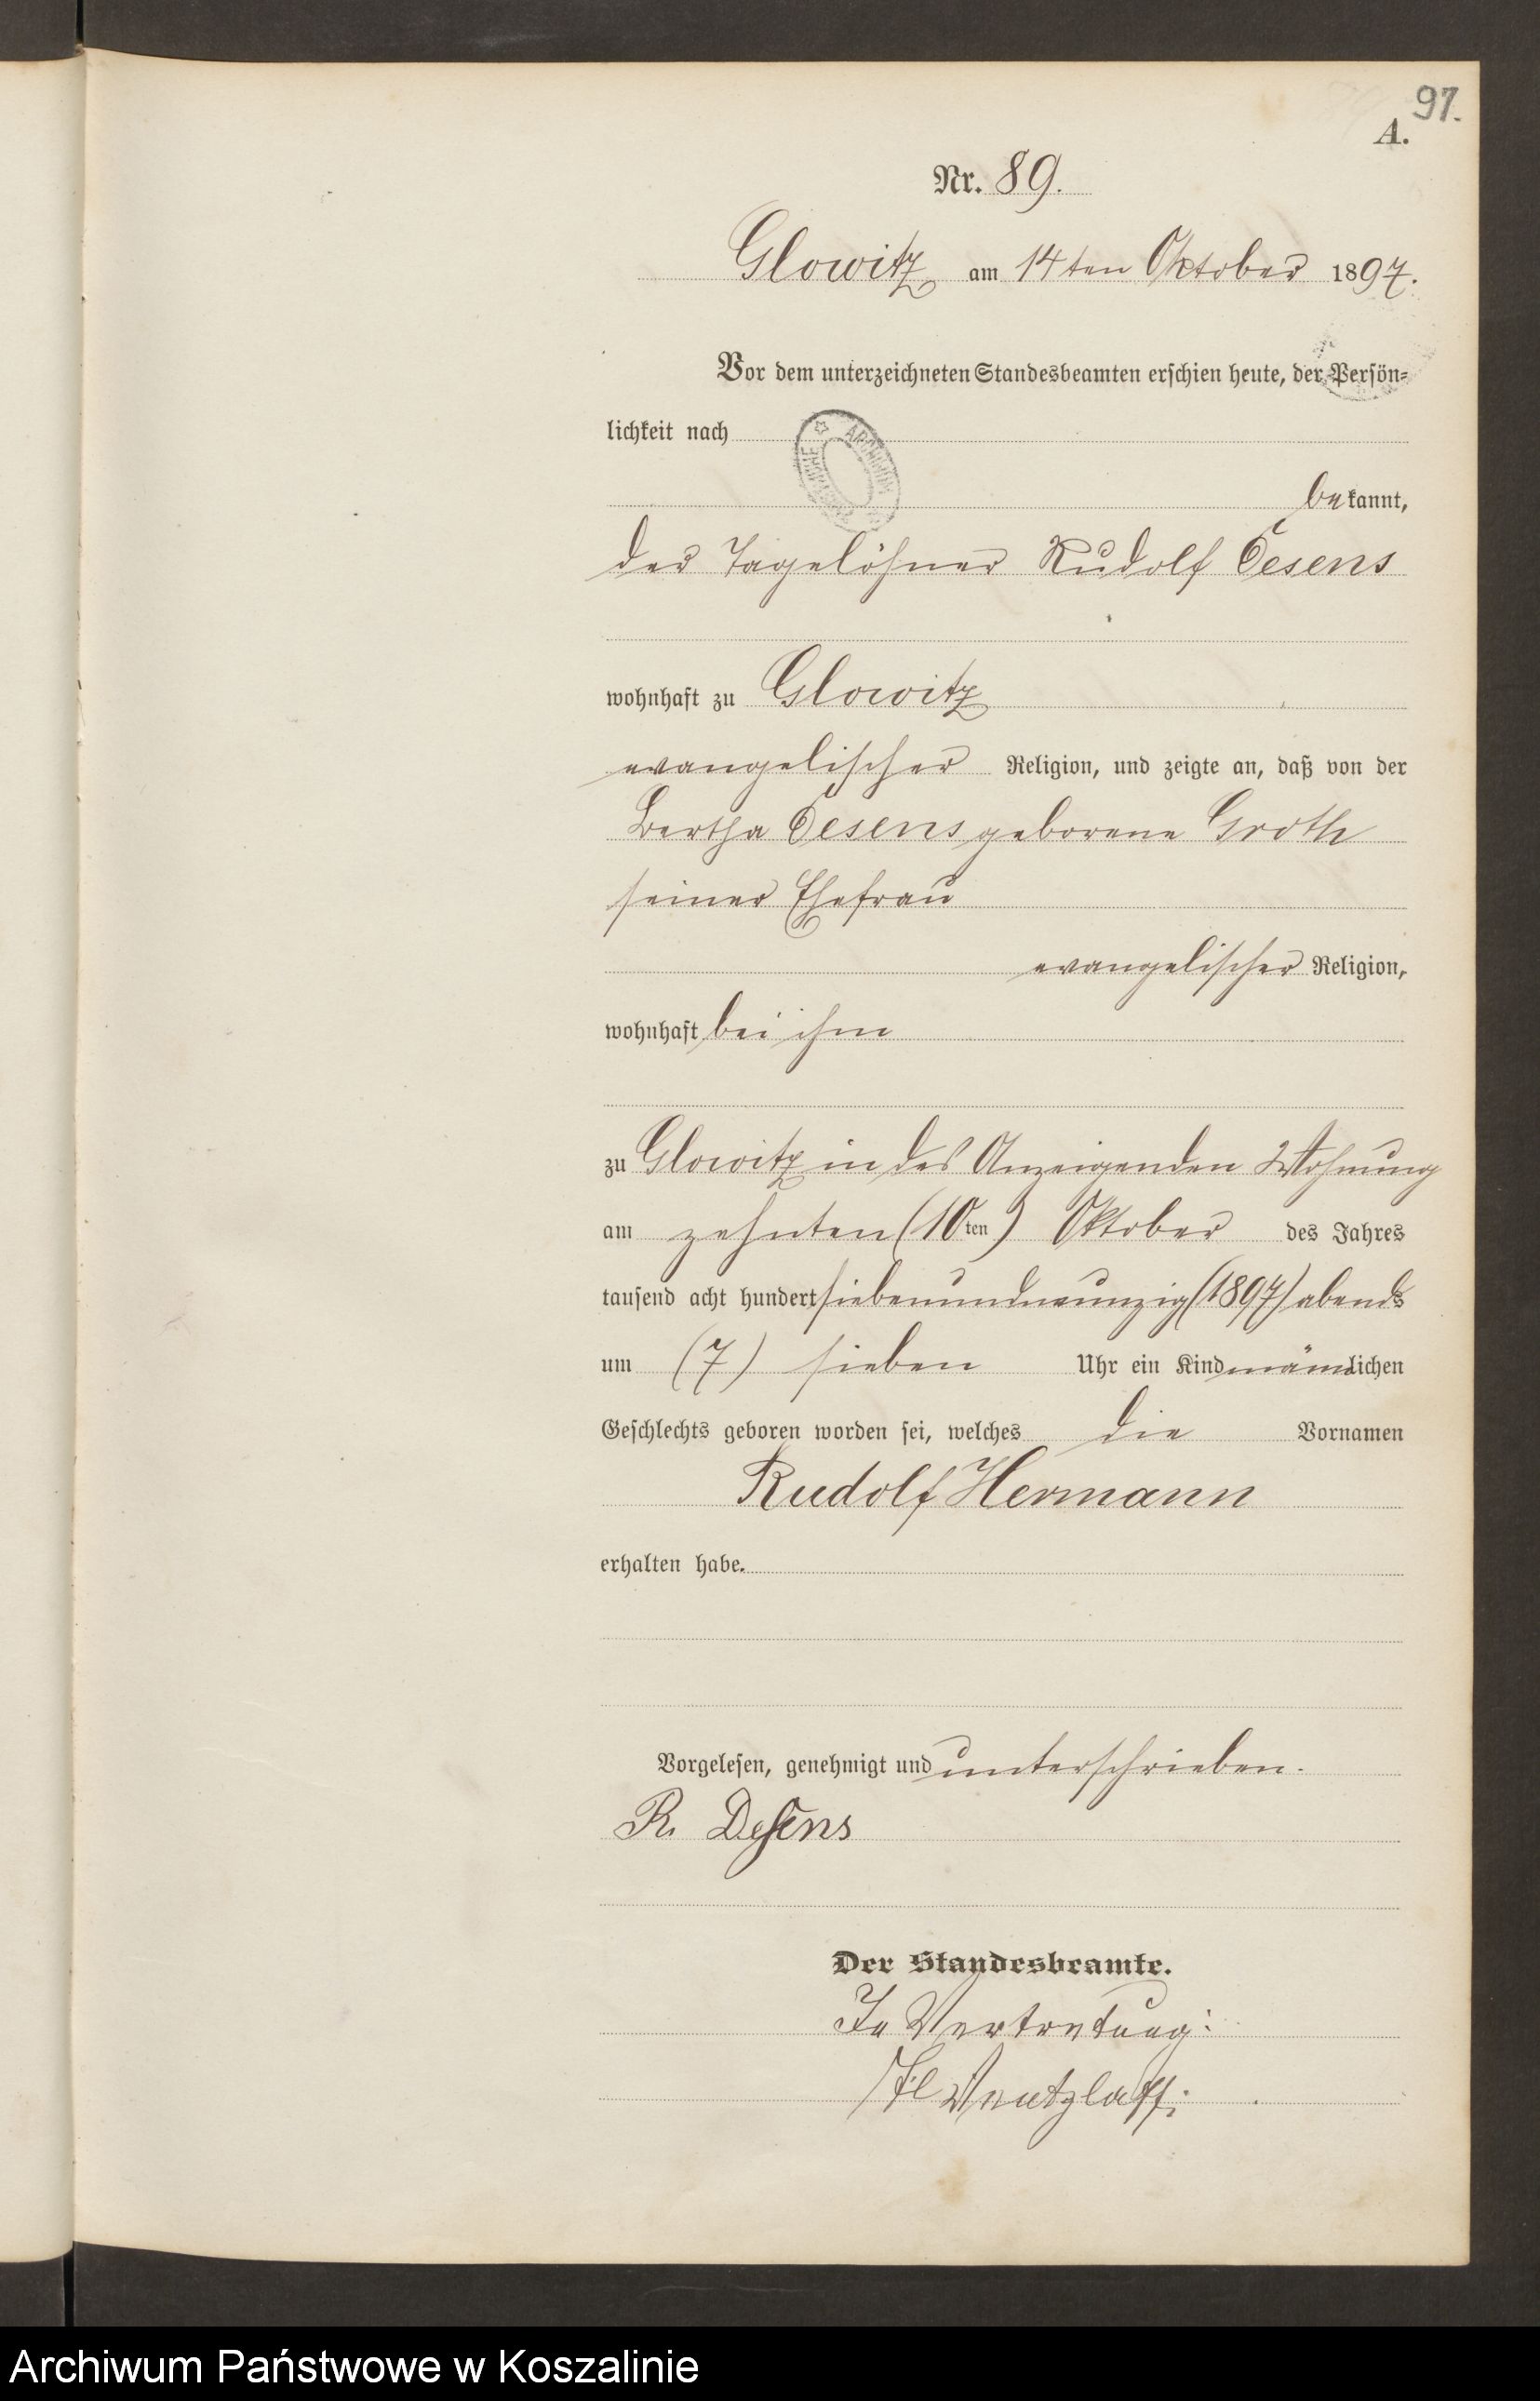 97.
A.
Nr. 89.
Glowitz am 14ten Oktober 1897.
Vor dem unterzeichneten Standesbeamten erschien heute, der Persön-
lichkeit nach
bekannt,
der Tagelöhner Rudolf Desens
wohnhaft zu Glowitz
evangelischer Religion, und zeigte an, daß von der
Bertha Desens geborene Groth
seiner Ehefrau
evangelischer Religion,
wohnhaft bei ihm
zu Glowitz in des Anzeigenden Wohnung
am zehnten (10ten) Oktober des Jahres
tausend acht hundert siebenundneunzig (1897) abends
um (7) sieben Uhr ein Kind männlichen
Geschlechts geboren worden sei, welches die Vornamen
Rudolf Hermann
erhalten habe.
Vorgelesen, genehmigt und unterschrieben.
R. Desens
Der Standesbeamte.
In Vertretung:
Wentzlaff.
Archiwum Państwowe w Koszalinie